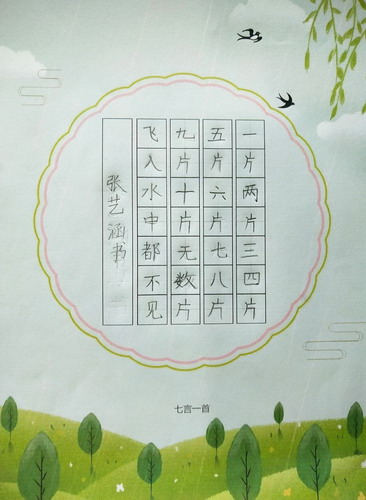 一片两片三四片
五片六片七八片
九片十片无数片
飞入水中都不见
张艺涵书
七言一首